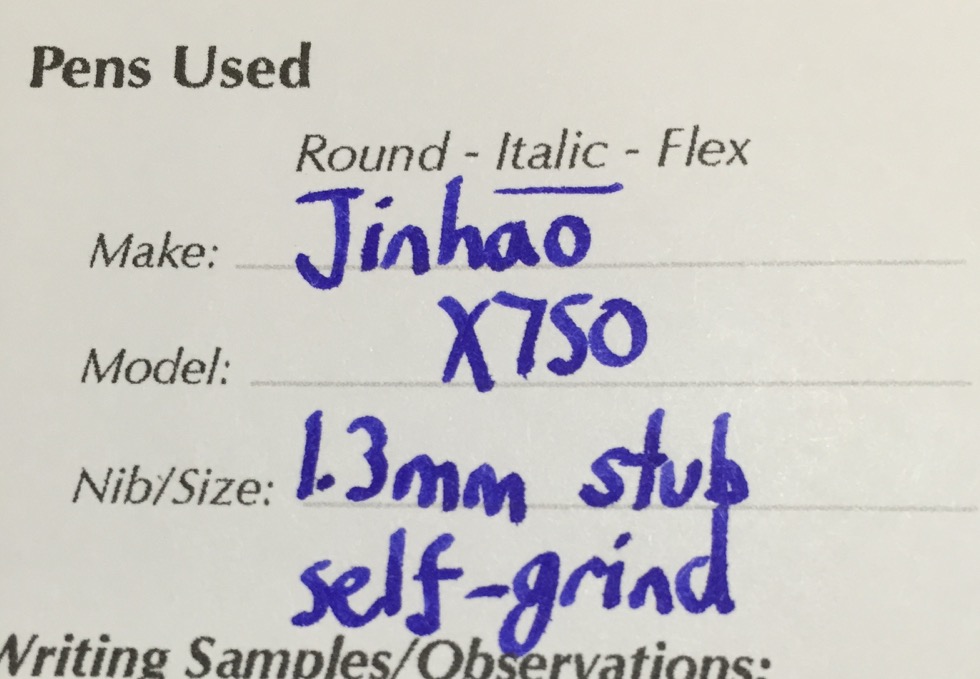 Pens Used
Round - Italic - Flex
Make: Jinhao
Model: X750
Nib/Size: 1.3mm stub
self-grind
Writing Samples/Observations: